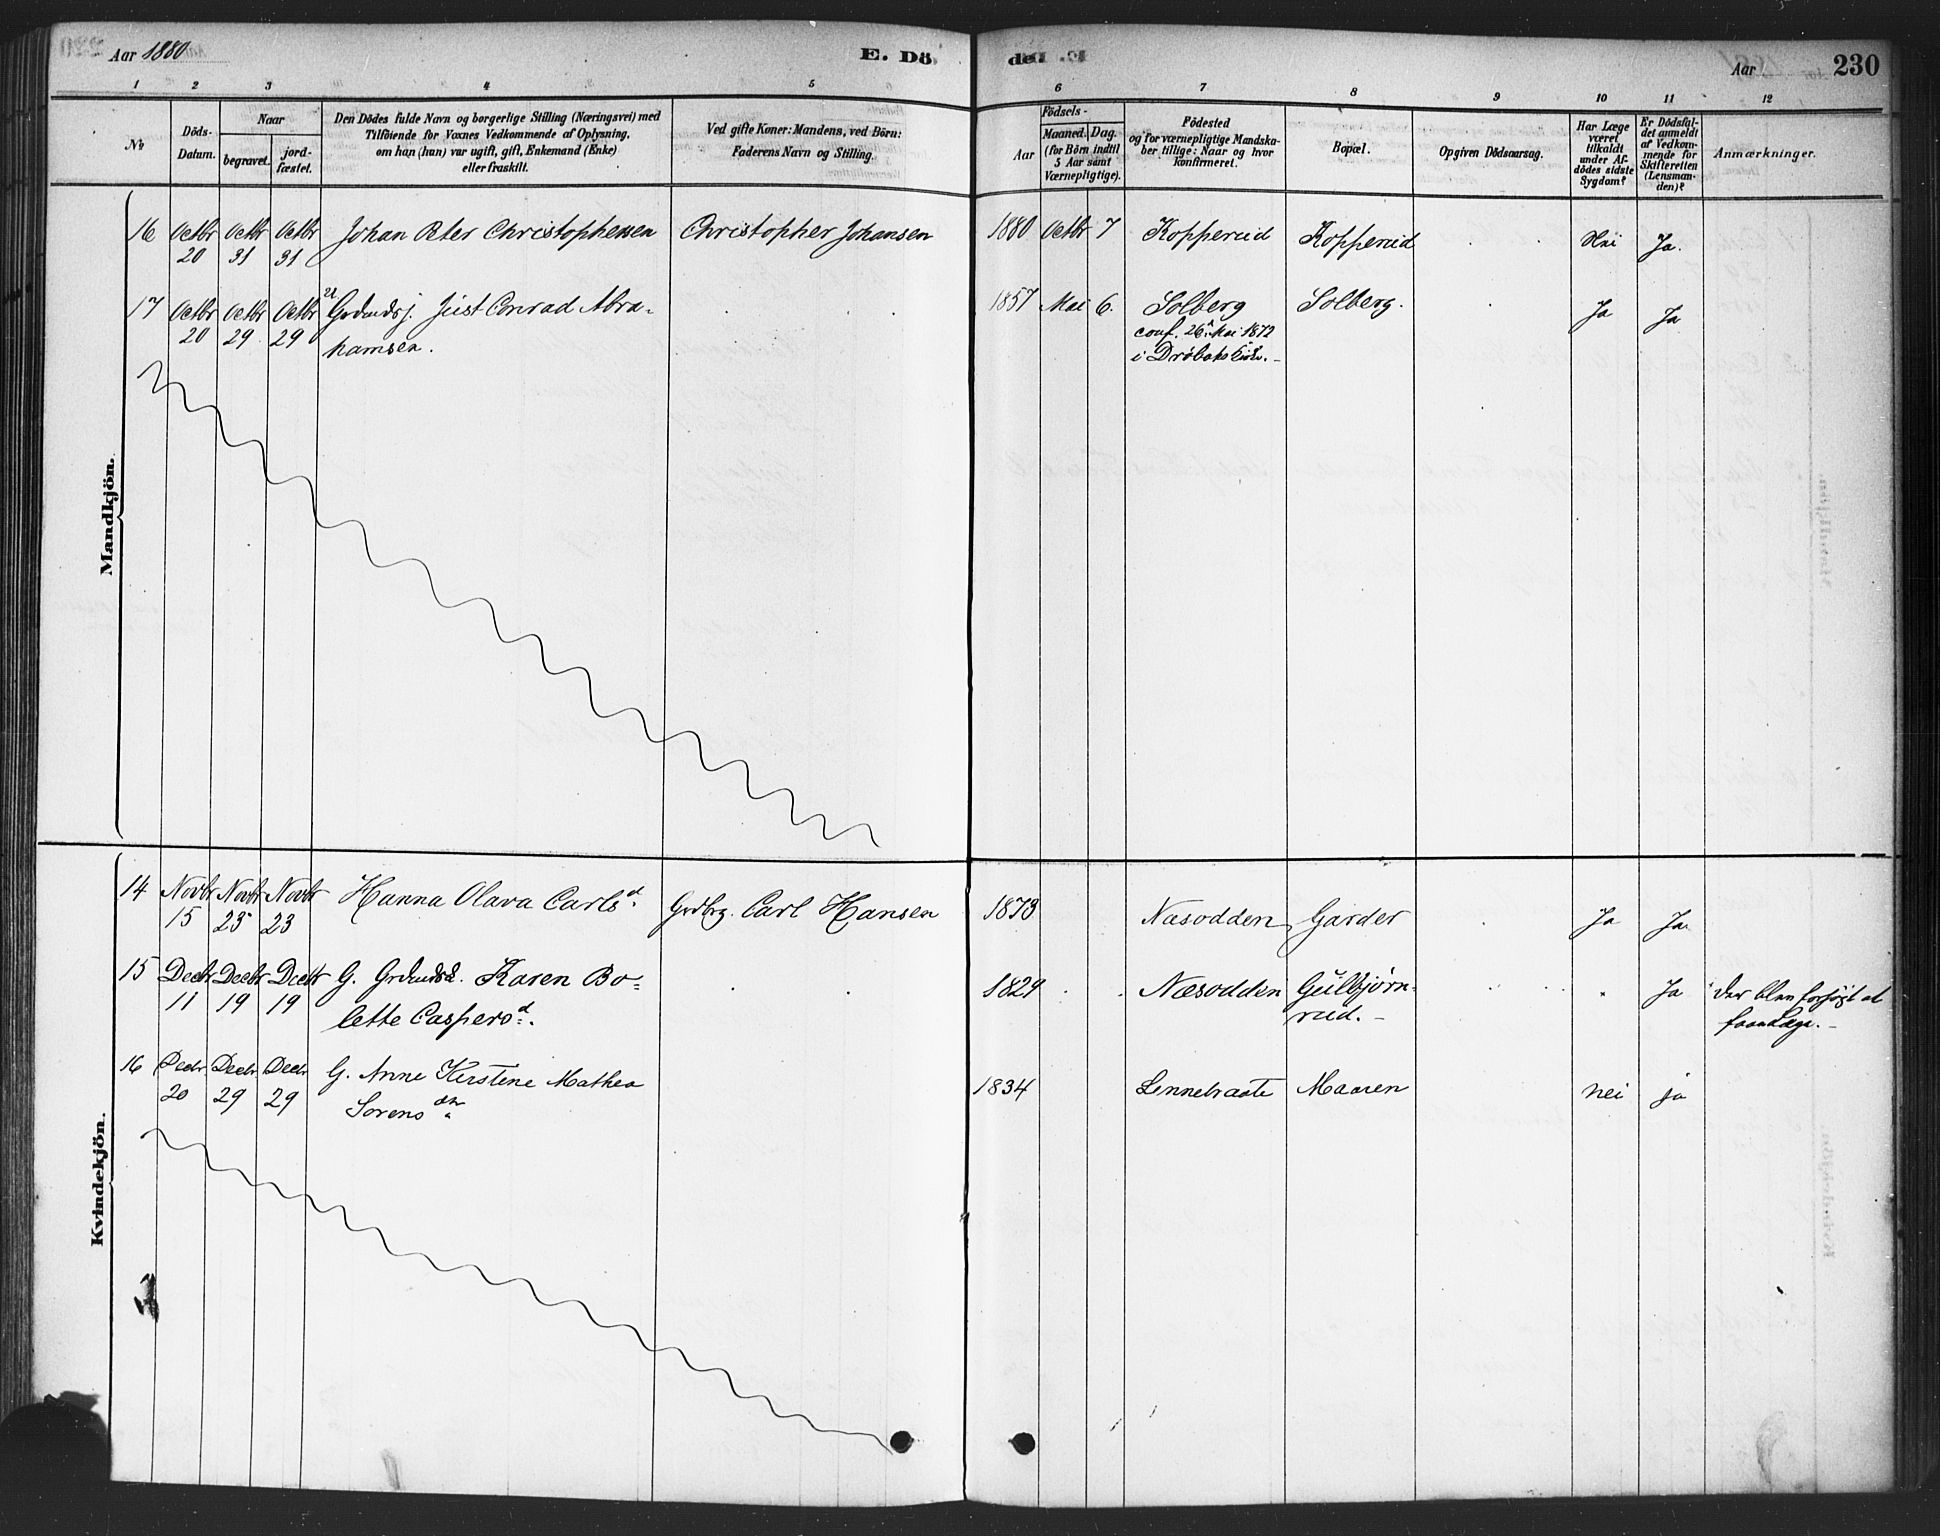 Aar 1880
E. Döde.
Aar
230
1 2 3 4 5 6 7 8 9 10 11 12
№
Döds-Datum.
Naar
begravet.
jord-fæstet.
Den Dödes fulde Navn og borgerlige Stilling (Næringsvei) med
Tilföiende for Voxnes Vedkommende af Oplysning,
om han (hun) var ugift, gift, Enkemand (Enke)
eller fraskilt.
Ved gifte Koner: Mandens, ved Börn:
Faderens Navn og Stilling.
Födsels-
Aar
Maaned. Dag.
(for Börn indtil
5 Aar samt
Værnepligtige).
Födested
og for værnepligtige Mandska-
ber tillige: Naar og hvor
konfirmeret.
Bopæl.
Opgiven Dödsaarsag.
Har Læge
været
tilkaldt
under Af-
dödes sidste
Sygdom?
Er Dödsfal-
det anmeldt
af Vedkom-
mende for
Skifteretten
(Lensman-
den)?
Anmærkninger.
Mandkjön.
16 Octbr Octbr Octbr Johan Peter Christophersen Christopher Johansen 1880 Octbr 7 Kopperud Kopperud Nei Ja.
20 31 31
17 Octbr Octbr Octbr U Grdmdsj. Just Conrad Abra- 1857 Mai 6. Solberg Solberg. Ja Ja
20 29 29 hamsen. conf. 26. Mai 1872
i Drøbaks
Kvindekjön.
14 Novbr Novbr Novbr Hanna Olava Carlsd. Grdbrg. Carl Hansen 1873 Næsodden Garder Ja Ja
15 23 23
15 Decbr Decbr Decbr G. Karen Bo- 1829 Næsodden Gulbjørn- Ja Der blev forsøgt at
11 19 19 lette Caspersd. rud. faa Læge.
16 Decbr. Decbr. Decbr. G. Anne Kirstine Mathea 1834 Linnebraate Maaren nei ja
20 29 29 Sorensdtr